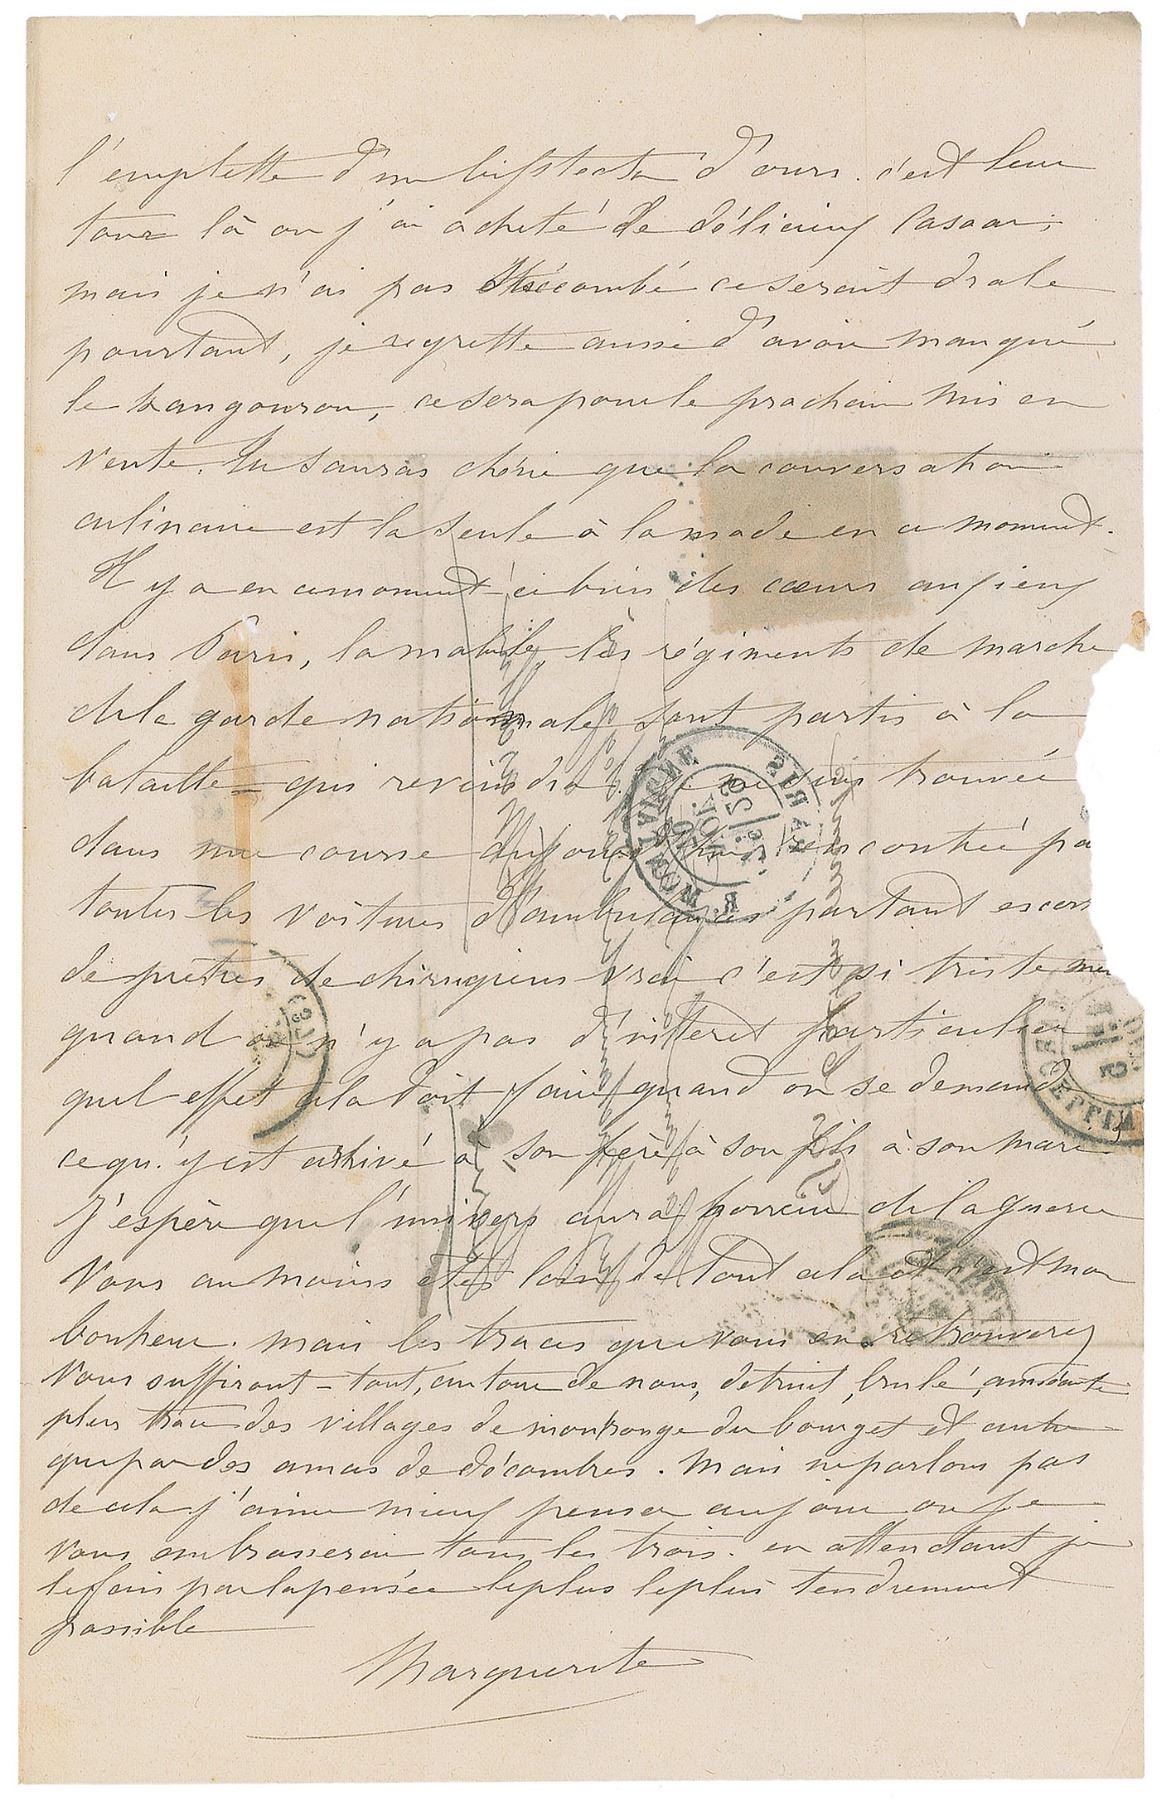 l'emplette d'un bifsteck d'ours. c'est leur
tour là ou j'ai acheté de délicieux Casoar,
mais je n'ai pas succombé ce serait drole
pourtant, je regrette aussi d'avoir manqué
le kangourou, ce sera pour le prochain mis en
vente. Tu sauras chérie que la conversation
culinaire est la seule à la mode en ce moment.
Il y a en ce moment ci bien des cœurs anxieux
dans Paris, la mobile, les régiments de marche
de la garde nationale sont partis à la
bataille – qui reviendra. Je me suis trouvée
dans une course aujourd'hui rencontrée pa
toutes les voitures d'ambulances partant escor
de prêtres de chirugiens vrai c'est si triste
quand on n'y a pas d'intteret particulier
quel effet cela doit faire quand on se demande
ce qu'y est arrivé à son frère à son fils à son mari
J'espère que l'univers aura horreur de la guerre
Vous au moins etes loin de tout cela et c'est mon
bonheur. mais les traces que vous en retrouverez
Vous suffiront – tout, autour de nous, detruit, brulé,
plus trace des villages de montrouge du bourget et autre
que par des amas de décombres. Mais ne parlons pas
de cela j'aime mieux penser au jour ou je
vous embrasserai tous les trois. en attendant je
le fais par la pensée le plus le plus tendrement
possible
Marguerite
PARIS
R. MONTAIGNE